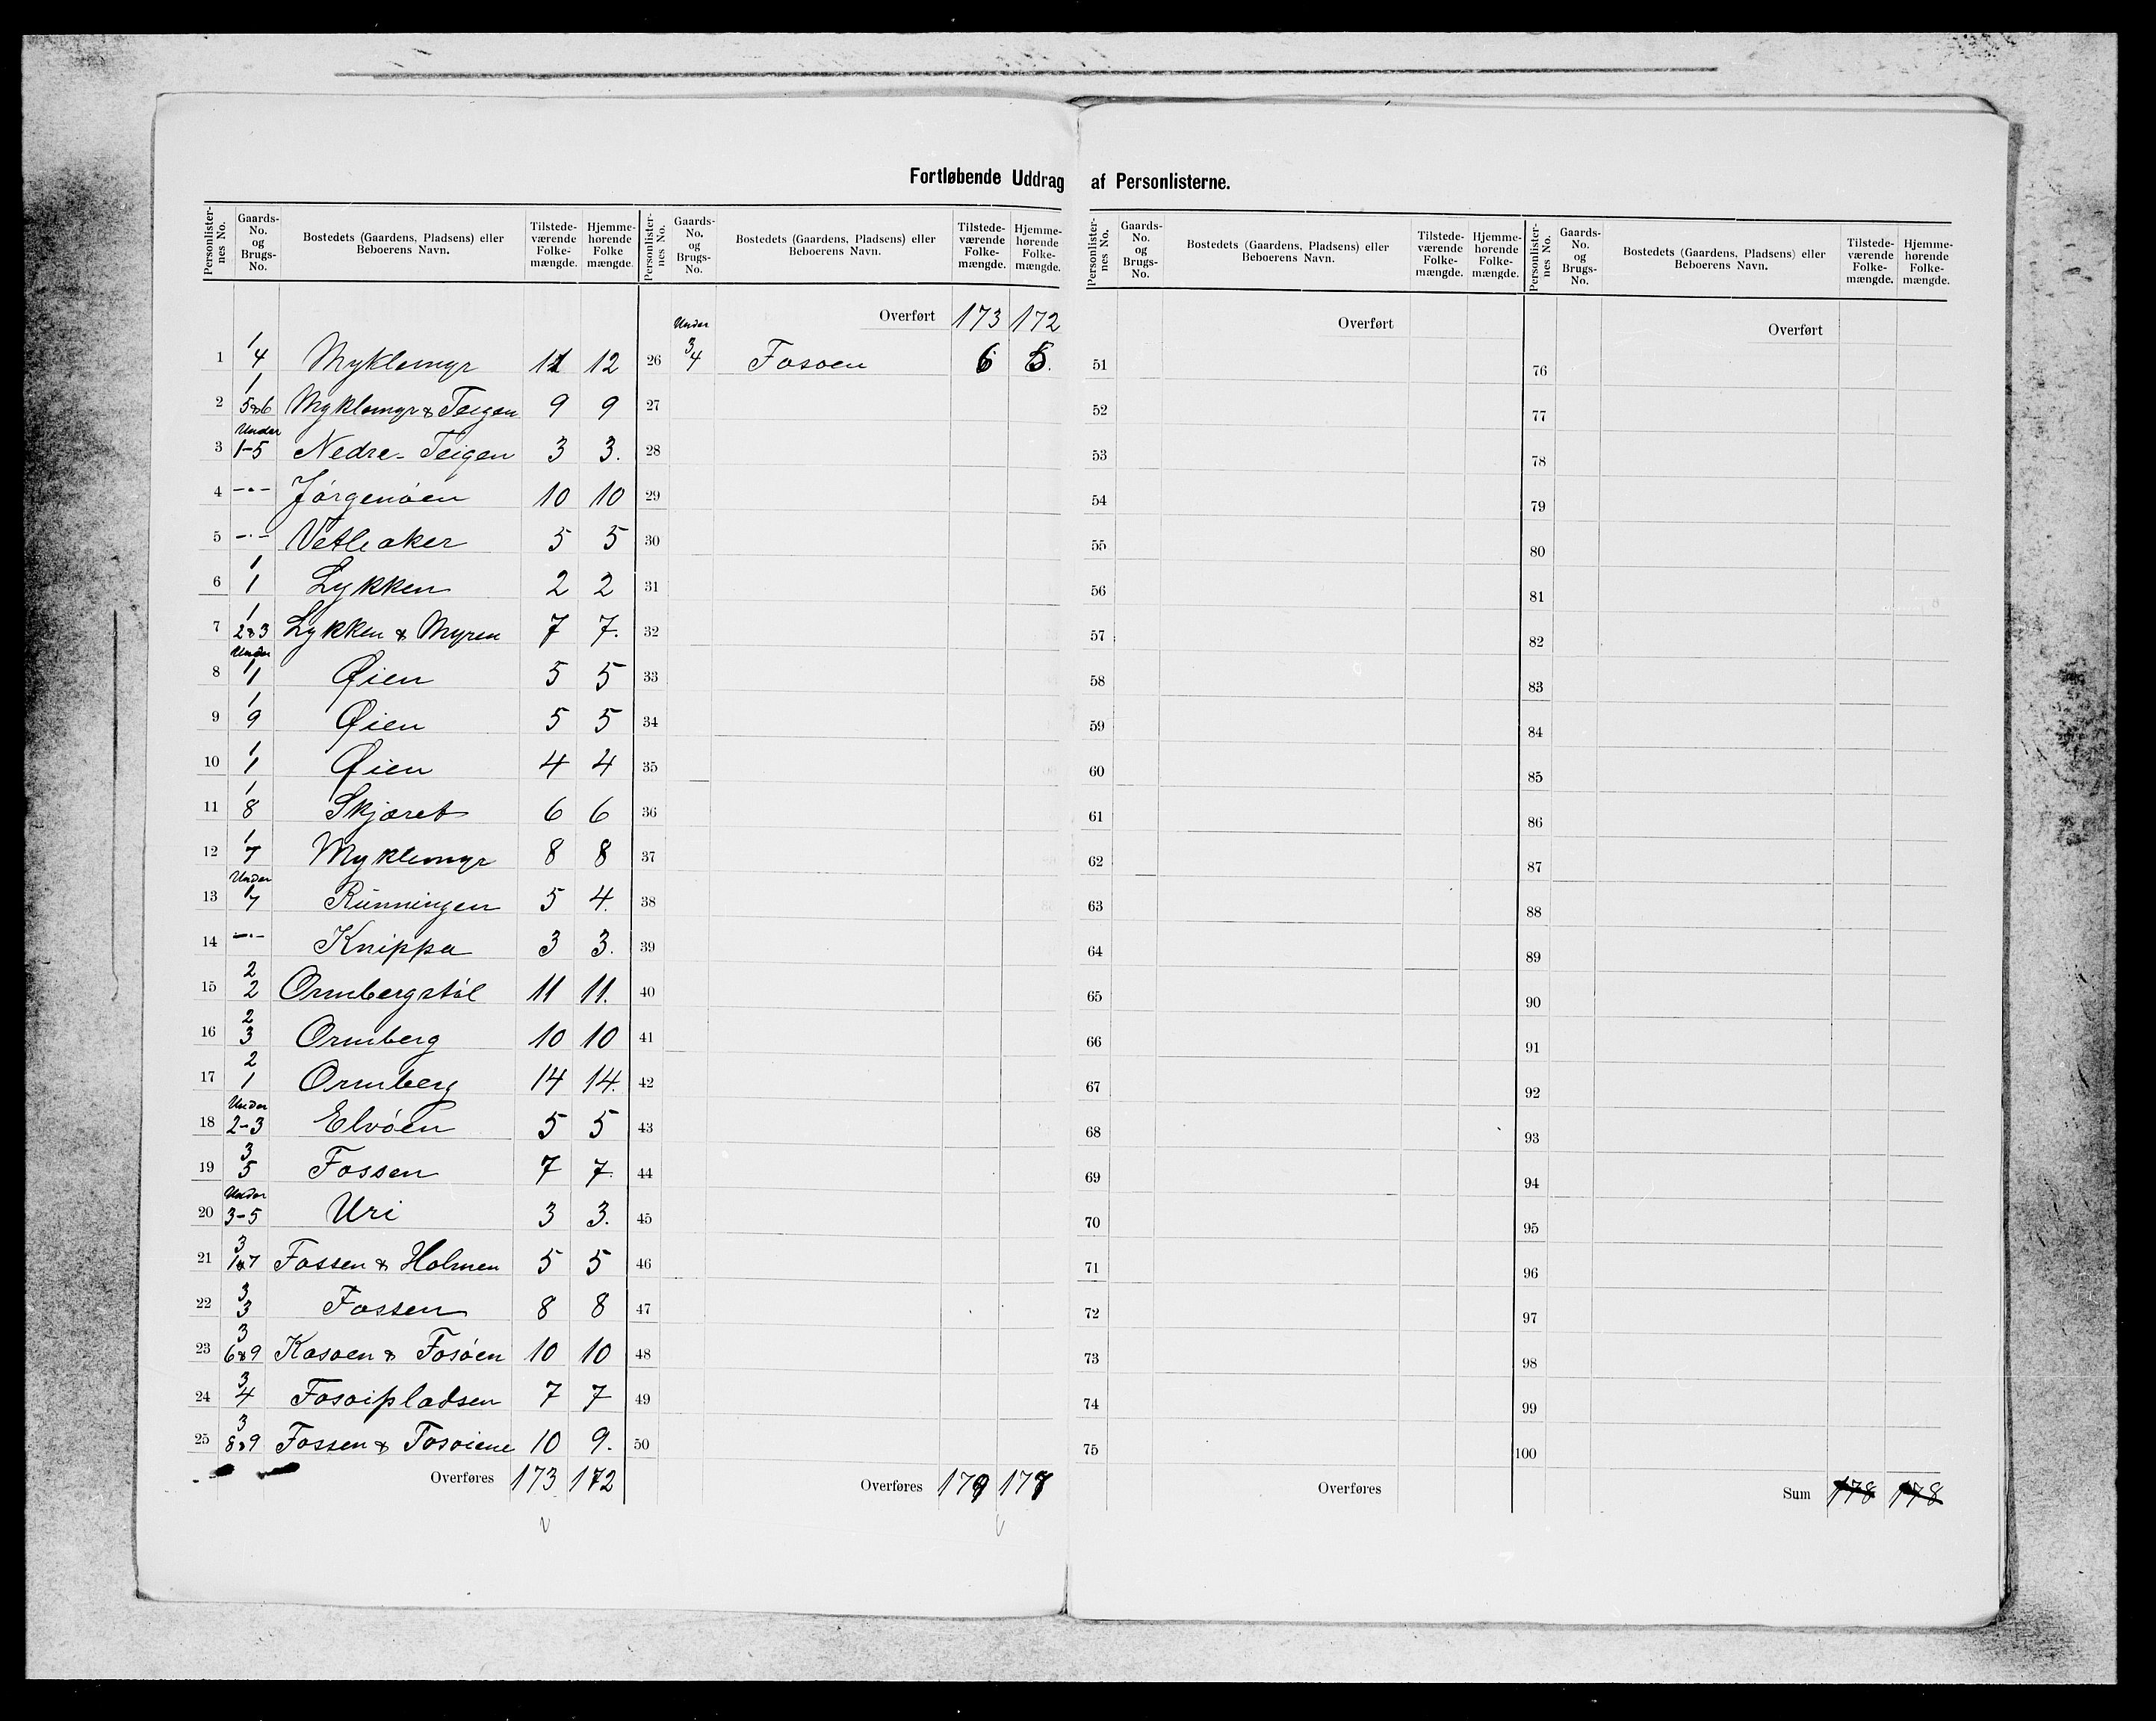 Fortløbende Uddrag af Personlisterne.
Personlister-nes No. | Gaards-No. og Brugs-No. | Bostedets (Gaardens, Pladsens) eller Beboerens Navn. | Tilstede-værende Folke-mængde. | Hjemme-hørende Folke mængde.
1 | 1/4 | Myklemyr | 11 | 12
2 | 1/5&6 | Myklemyr & Teigen | 9 | 9
3 | Under 1-5 | Nedre-Teigen | 3 | 3.
4 | -"- | Jørgenøen | 10 | 10
5 | -"- | Vetleaker | 5 | 5
6 | 1/1 | Lykken | 2 | 2
7 | 1/2&3 | Lykken & Myren | 7 | 7.
8 | Under 1/1 | Øien | 5 | 5
9 | 1/9 | Øien | 5 | 5
10 | 1/1 | Øien | 4 | 4
11 | 1/8 | Skjæret | 6 | 6
12 | 1/7 | Myklemyr | 8 | 8
13 | Under 1/7 | Runningen | 5 | 4.
14 | -"- | Knippa | 3 | 3.
15 | 2/2 | Ormbergstøl | 11 | 11.
16 | 2/3 | Ormberg | 10 | 10
17 | 2/1 | Ormberg | 14 | 14.
18 | Under 2-3 | Elvøen | 5 | 5
19 | 3/5 | Fossen | 7 | 7.
20 | Under 3-5 | Uri | 3 | 3.
21 | 3/1&7 | Fossen & Holmen | 5 | 5
22 | 3/3 | Fossen | 8 | 8
23 | 3/6&9 | Kasoen & Fosøen | 10 | 10
24 | 3/4 | Fosoipladsen | 7 | 7
25 | 3/8&9 | Fossen & Fosoiene | 10 | 9.
Overføres | 173 | 172
Personlister-nes No. | Gaards-No. og Brugs-No. | Bostedets (Gaardens, Pladsens) eller Beboerens Navn. | Tilstede-værende Folke-mængde. | Hjemme-hørende Folke-mængde.
Overført | 173 | 172
26 | Under 3/4 | Fosoen | 6 | 5.
27
28
29
30
31
32
33
34
35
36
37
38
39
40
41
42
43
44
45
46
47
48
49
50
Overføres | 179 | 177
Personlister-nes No. | Gaards-No. og Brugs-No. | Bostedets (Gaardens, Pladsens) eller Beboerens Navn. | Tilstede-værende Folke-mængde. | Hjemme-hørende Folke-mængde.
Overført
51
52
53
54
55
56
57
58
59
60
61
62
63
64
65
66
67
68
69
70
71
72
73
74
75
Overføres
Personlister-nes No. | Gaards-No. og Brugs-No. | Bostedets (Gaardens, Pladsens) eller Beboerens Navn. | Tilstede-værende Folke-mængde. | Hjemme-hørende Folke-mængde.
Overført
76
77
78
79
80
81
82
83
84
85
86
87
88
89
90
91
92
93
94
95
96
97
98
99
100
Sum | 178 | 178